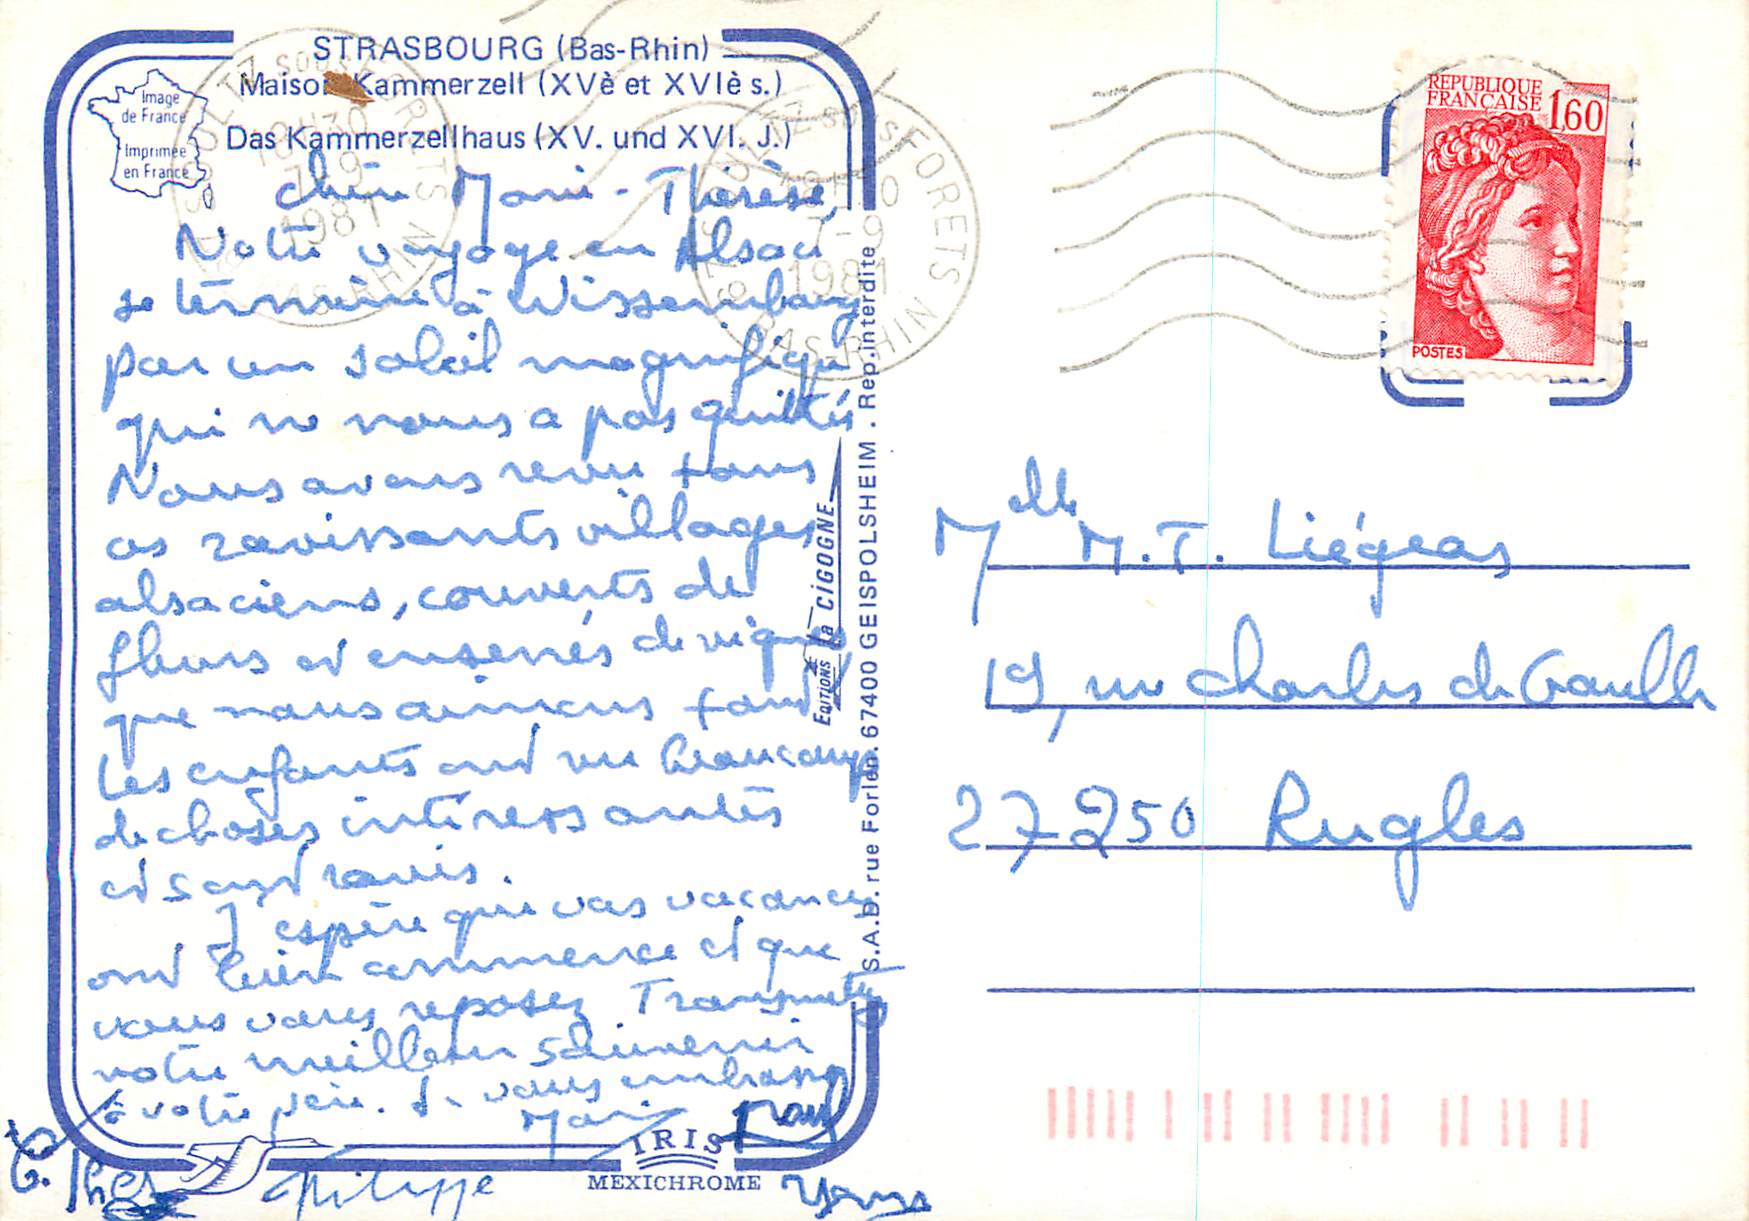 STRASBOURG (Bas-Rhin)
Maison Kammerzell (XVè et XVIè s.)
Das Kammerzellhaus (XV. und XVI. J.)
Image
de France
Imprimée
en France
SOULTZ SOUS FORETS
18H30
7-9
1981
BAS-RHIN
SOULTZ SOUS FORETS
18H30
7-9
1981
BAS-RHIN
REPUBLIQUE
FRANÇAISE 1,60
POSTES
Chère Marie-Thérèse,
Notre voyage en Alsace
se termine à Wissembourg
par un soleil magnifique
qui ne nous a pas quittés
Nous avons revu tous
ces ravissants villages
alsaciens, couverts de
fleurs et enserrés de vignes
que nous aimons tant
Les enfants ont vu beaucoup
de choses intéressantes
et sont ravis.
J'espère que vos vacances
ont bien commencé et que
vous vous reposez Transmettez
notre meilleur souvenir
à votre père. Je vous embrasse
Philippe
EDITIONS La CIGOGNE
S.A.E.D. rue Forlen. 67400 GEISPOLSHEIM . Rep. interdite
IRIS
MEXICHROME
Melle M.T. Liégeas
19, rue Charles de Gaulle
27250 Rugles